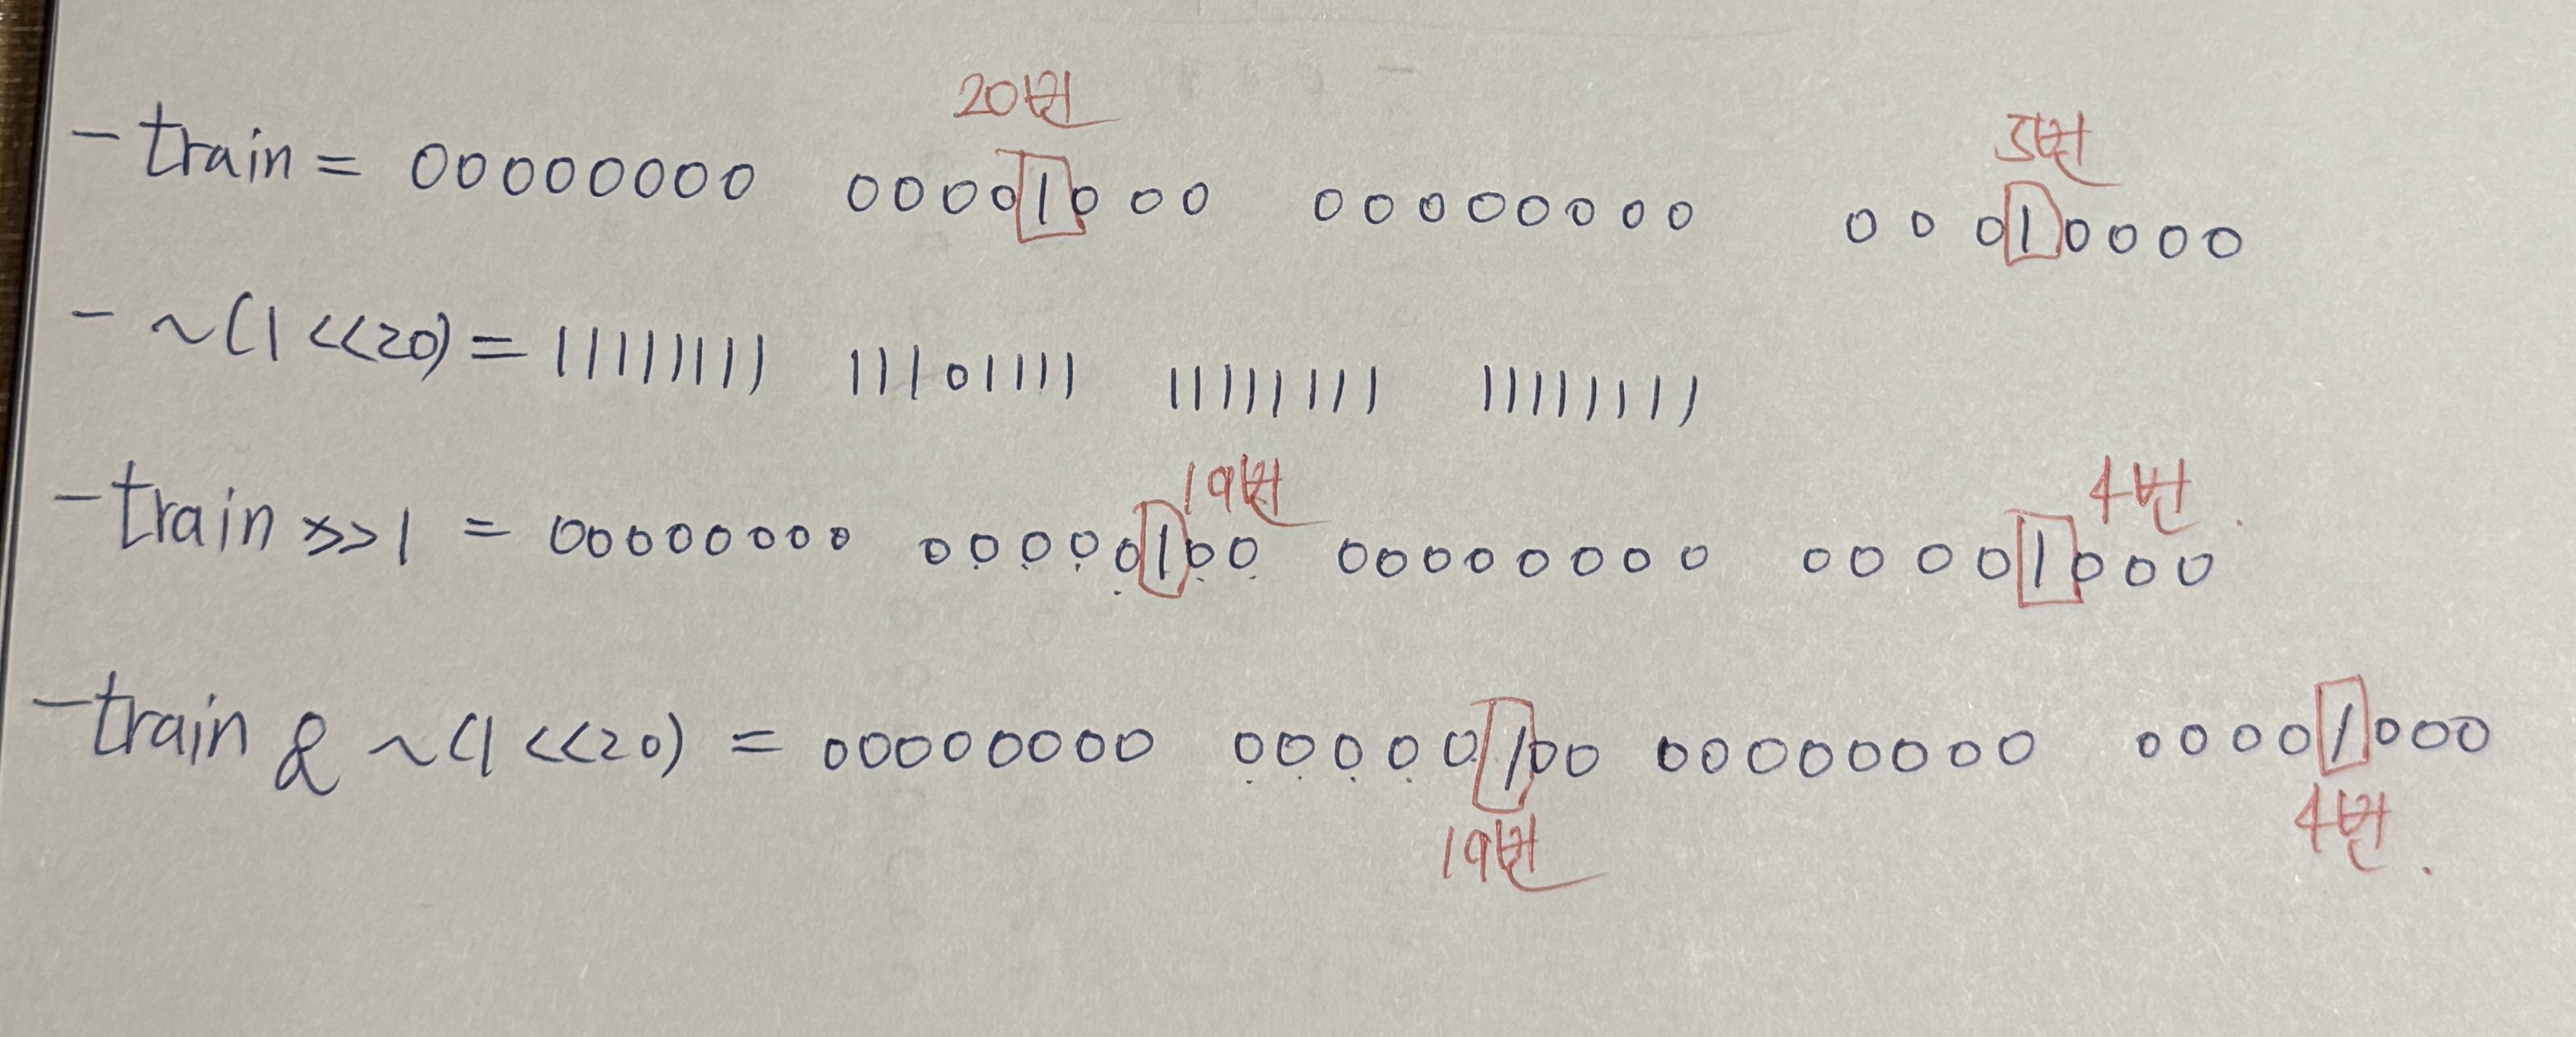 20번 5번
- train = 00000000 00001000 00000000 00010000
- ~(1<<20) = 11111111 11101111 11111111 11111111
19번 4번
- train >>1 = 00000000 00000100 00000000 00001000
- train & ~(1<<20) = 00000000 00000100 00000000 00001000
19번 4번